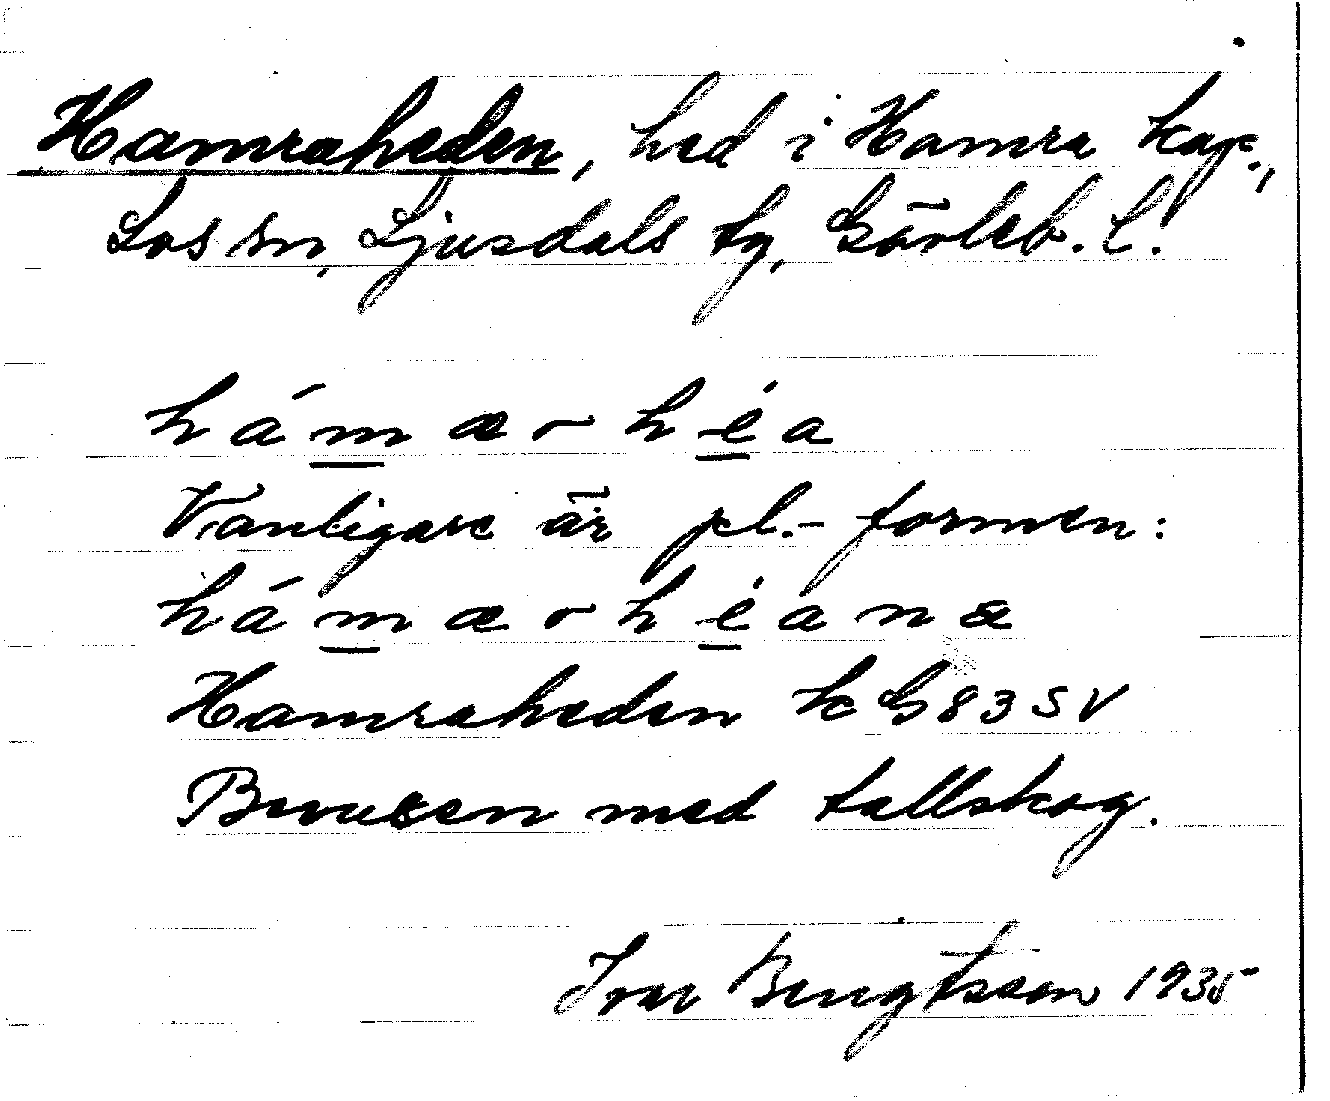 Hamraheden, hed i Hamra kap.,
Los sn, Ljusdals tg, Gävleb. l.
hámærhéa
Vanligare är pl.-formen:
hámærhéanæ
Hamraheden k G83SV
Bevuxen med tallskog.
Ivar Bengtsson 1935